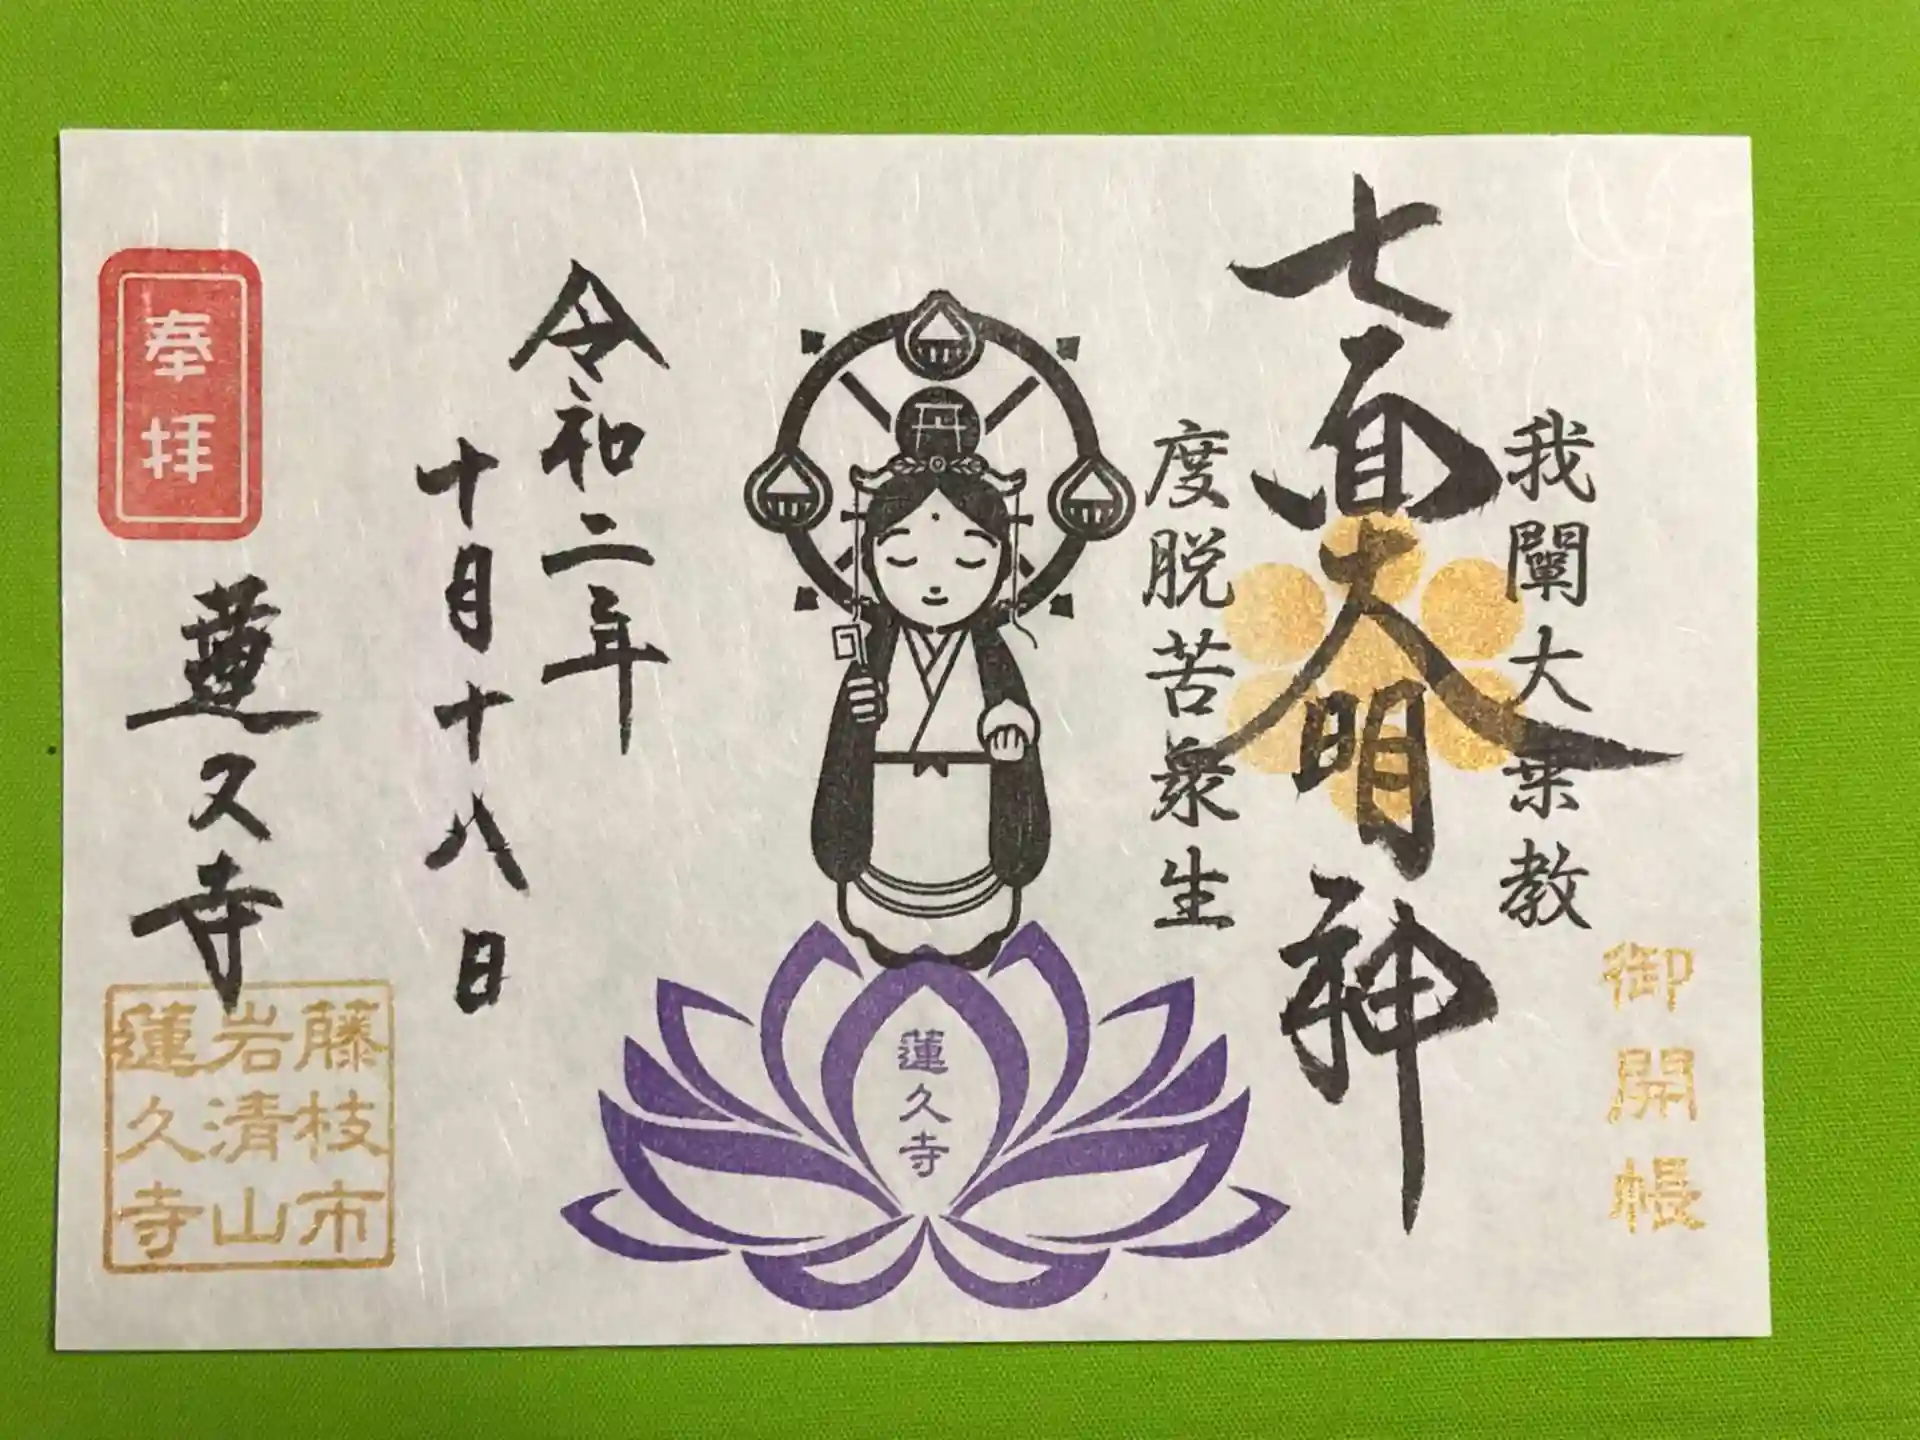 御開帳
我闡大乗教
七面大明神
度脱苦衆生
蓮久寺
令和二年
十月十八日
奉拝
蓮久寺
藤枝市
岩清山
蓮久寺